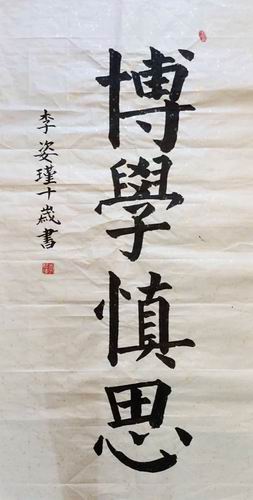 博學慎思
李姿瑾十歲書